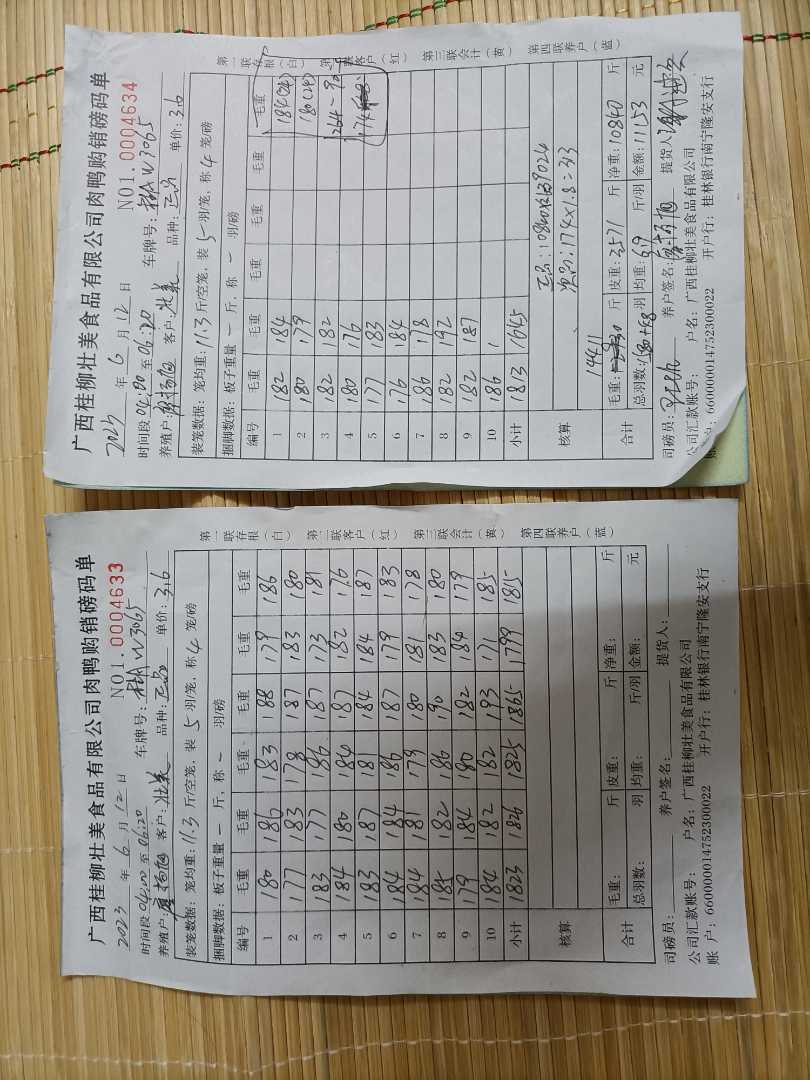 广西桂柳壮美食品有限公司肉鸭购销磅码单
2023 年 6 月 12 日 NO1.0004633
时间段 04:00 至 06:20 车牌号: W3065
养殖户: 客户: 品种: 正品 单价: 3.6
装笼数据: 笼均重: 11.3 斤/空笼, 装 5 羽/笼, 称 4 笼/磅
捆脚数据: 板子重量 一 斤, 称 一 羽/磅
编号 毛重 毛重 毛重 毛重 毛重 毛重
1 180 186 183 188 179 186
2 177 183 178 187 183 180
3 183 177 186 187 173 181
4 184 180 184 187 182 176
5 183 187 181 184 184 187
6 184 184 186 187 179 183
7 184 181 179 180 181 178
8 185 182 186 190 183 180
9 179 184 180 182 184 179
10 184 182 182 193 171 185
小计 1823 1826 1825 1865 1799 1815
核算
合计 毛重: 斤 皮重: 斤 净重: 斤
总羽数: 羽 均重: 斤/羽 金额: 元
司磅员: 养户签名: 提货人:
公司汇款账号: 户名: 广西桂柳壮美食品有限公司
账 户: 660000014752300022 开户行: 桂林银行南宁隆安支行
第一联存根(白) 第二联客户(红) 第三联会计(黄) 第四联养户(蓝)
广西桂柳壮美食品有限公司肉鸭购销磅码单
2023 年 6 月 12 日 NO1.0004634
时间段 04:00 至 06:20 车牌号: W3065
养殖户: 客户: 品种: 正品 单价: 3.6
装笼数据: 笼均重: 11.3 斤/空笼, 装 5 羽/笼, 称 4 笼/磅
捆脚数据: 板子重量 一 斤, 称 一 羽/磅
编号 毛重 毛重 毛重 毛重 毛重 毛重
1 182 184 184(24)
2 180 179 180(24)
3 182 182 264-90
4 180 176 174
5 177 183
6 176 184
7 186 178
8 182 192
9 182 187
10 186
小计 1813 1645
核算 正品: 10840 39024
次品: 174×1.8=313
14411
合计 毛重: 斤 皮重: 3571 斤 净重: 10840 斤
总羽数: 1580+48 羽 均重: 6.9 斤/羽 金额: 11153 元
司磅员: 养户签名: 提货人:
公司汇款账号: 户名: 广西桂柳壮美食品有限公司
账 户: 660000014752300022 开户行: 桂林银行南宁隆安支行
第一联存根(白) 第二联客户(红) 第三联会计(黄) 第四联养户(蓝)